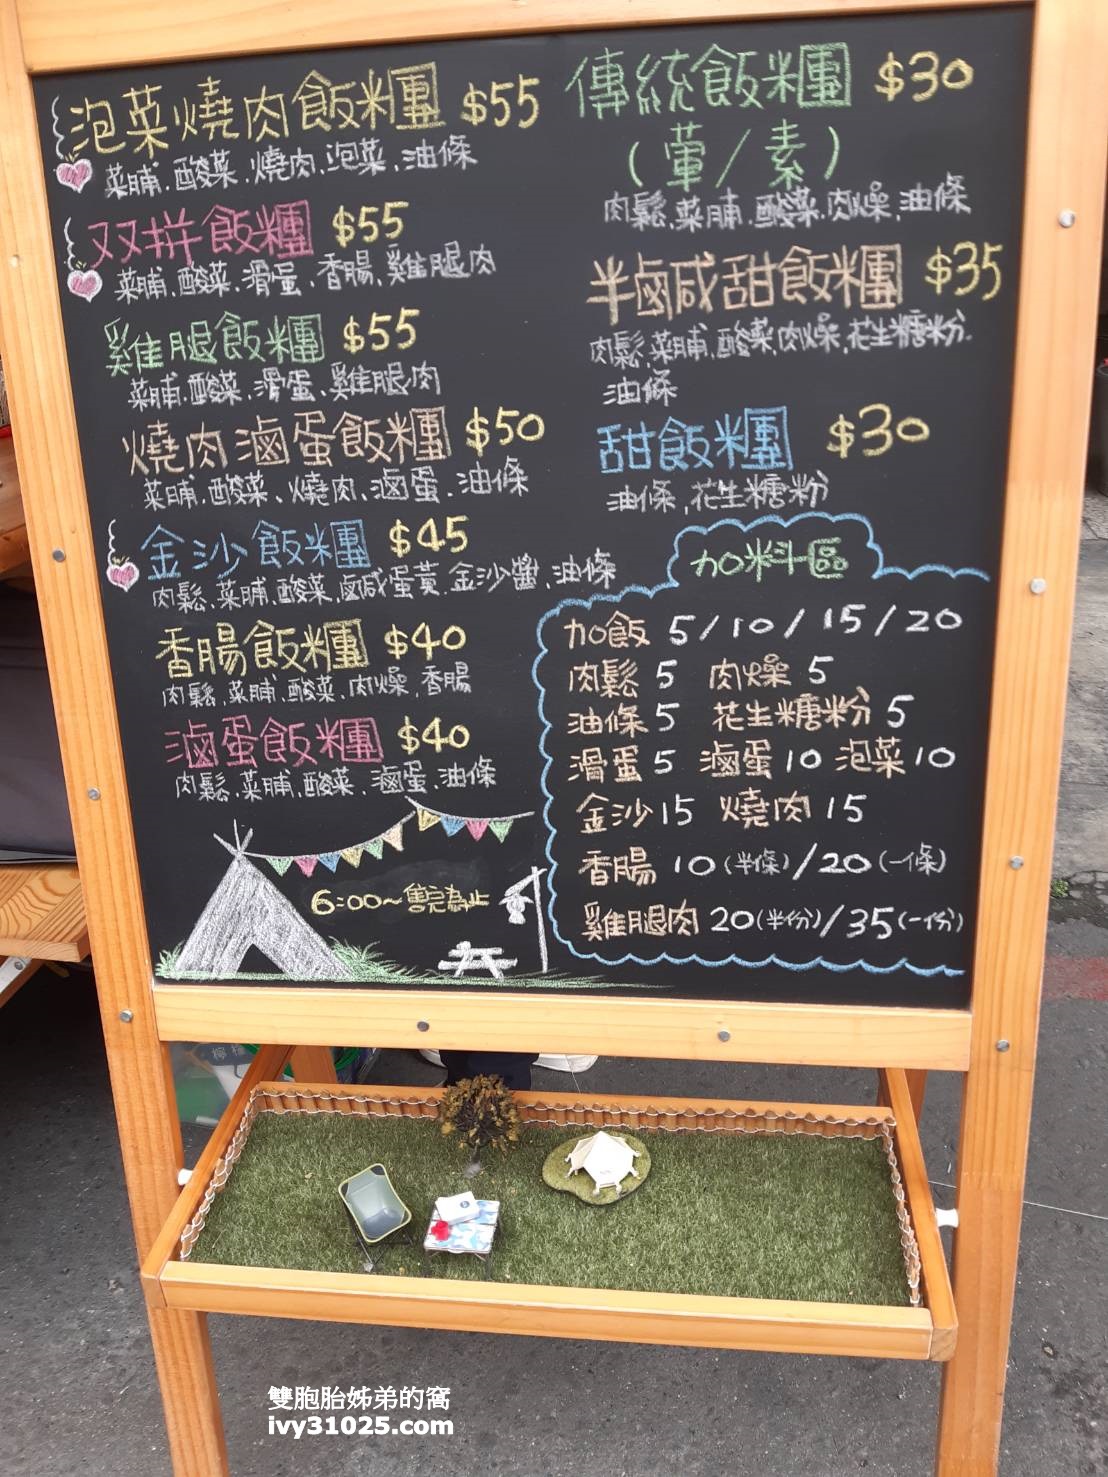 泡菜燒肉飯糰 $55
菜脯.酸菜.燒肉.泡菜.油條
双拼飯糰 $55
菜脯.酸菜.滑蛋.香腸.雞腿肉
雞腿飯糰 $55
菜脯.酸菜.滑蛋.雞腿肉
燒肉滷蛋飯糰 $50
菜脯.酸菜、燒肉.滷蛋.油條
金沙飯糰 $45
肉鬆.菜脯.酸菜.鹵咸蛋黃.金沙醬.油條
香腸飯糰 $40
肉鬆.菜脯.酸菜.肉燥.香腸
滷蛋飯糰 $40
肉鬆.菜脯.酸菜.滷蛋.油條
6:00~售完為止
傳統飯糰 $30
(葷/素)
肉鬆.菜脯.酸菜.肉燥.油條
半鹵咸甜飯糰 $35
肉鬆.菜脯.酸菜.肉燥.花生糖粉.
油條
甜飯糰 $30
油條.花生糖粉
加料區
加飯 5/10/15/20
肉鬆 5 肉燥 5
油條 5 花生糖粉 5
滑蛋 5 滷蛋 10 泡菜 10
金沙 15 燒肉 15
香腸 10(半條)/20(一條)
雞腿肉 20(半份)/35(一份)
雙胞胎姊弟的窩
ivy31025.com